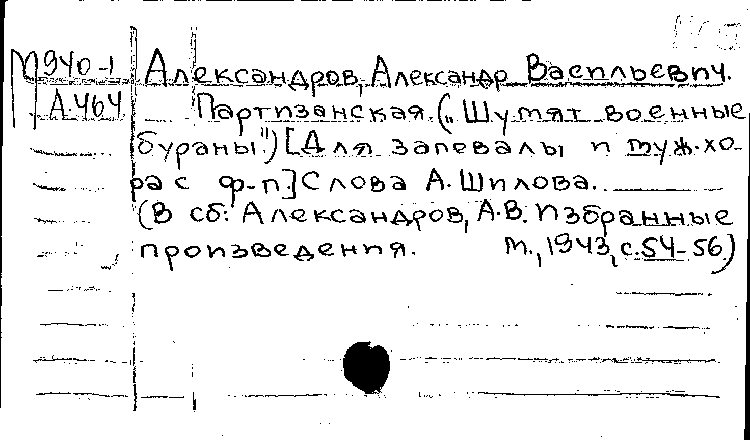 М940-1 Александров, Александр Васильевич.
А.464 Партизанская. („Шумят военные
бураны") [Для запевалы и муж. хо-
ра с ф-п.] Слова А. Шилова.
(В сб: Александров, А.В. Избранные
произведения. М., 1943, с. 54-56)